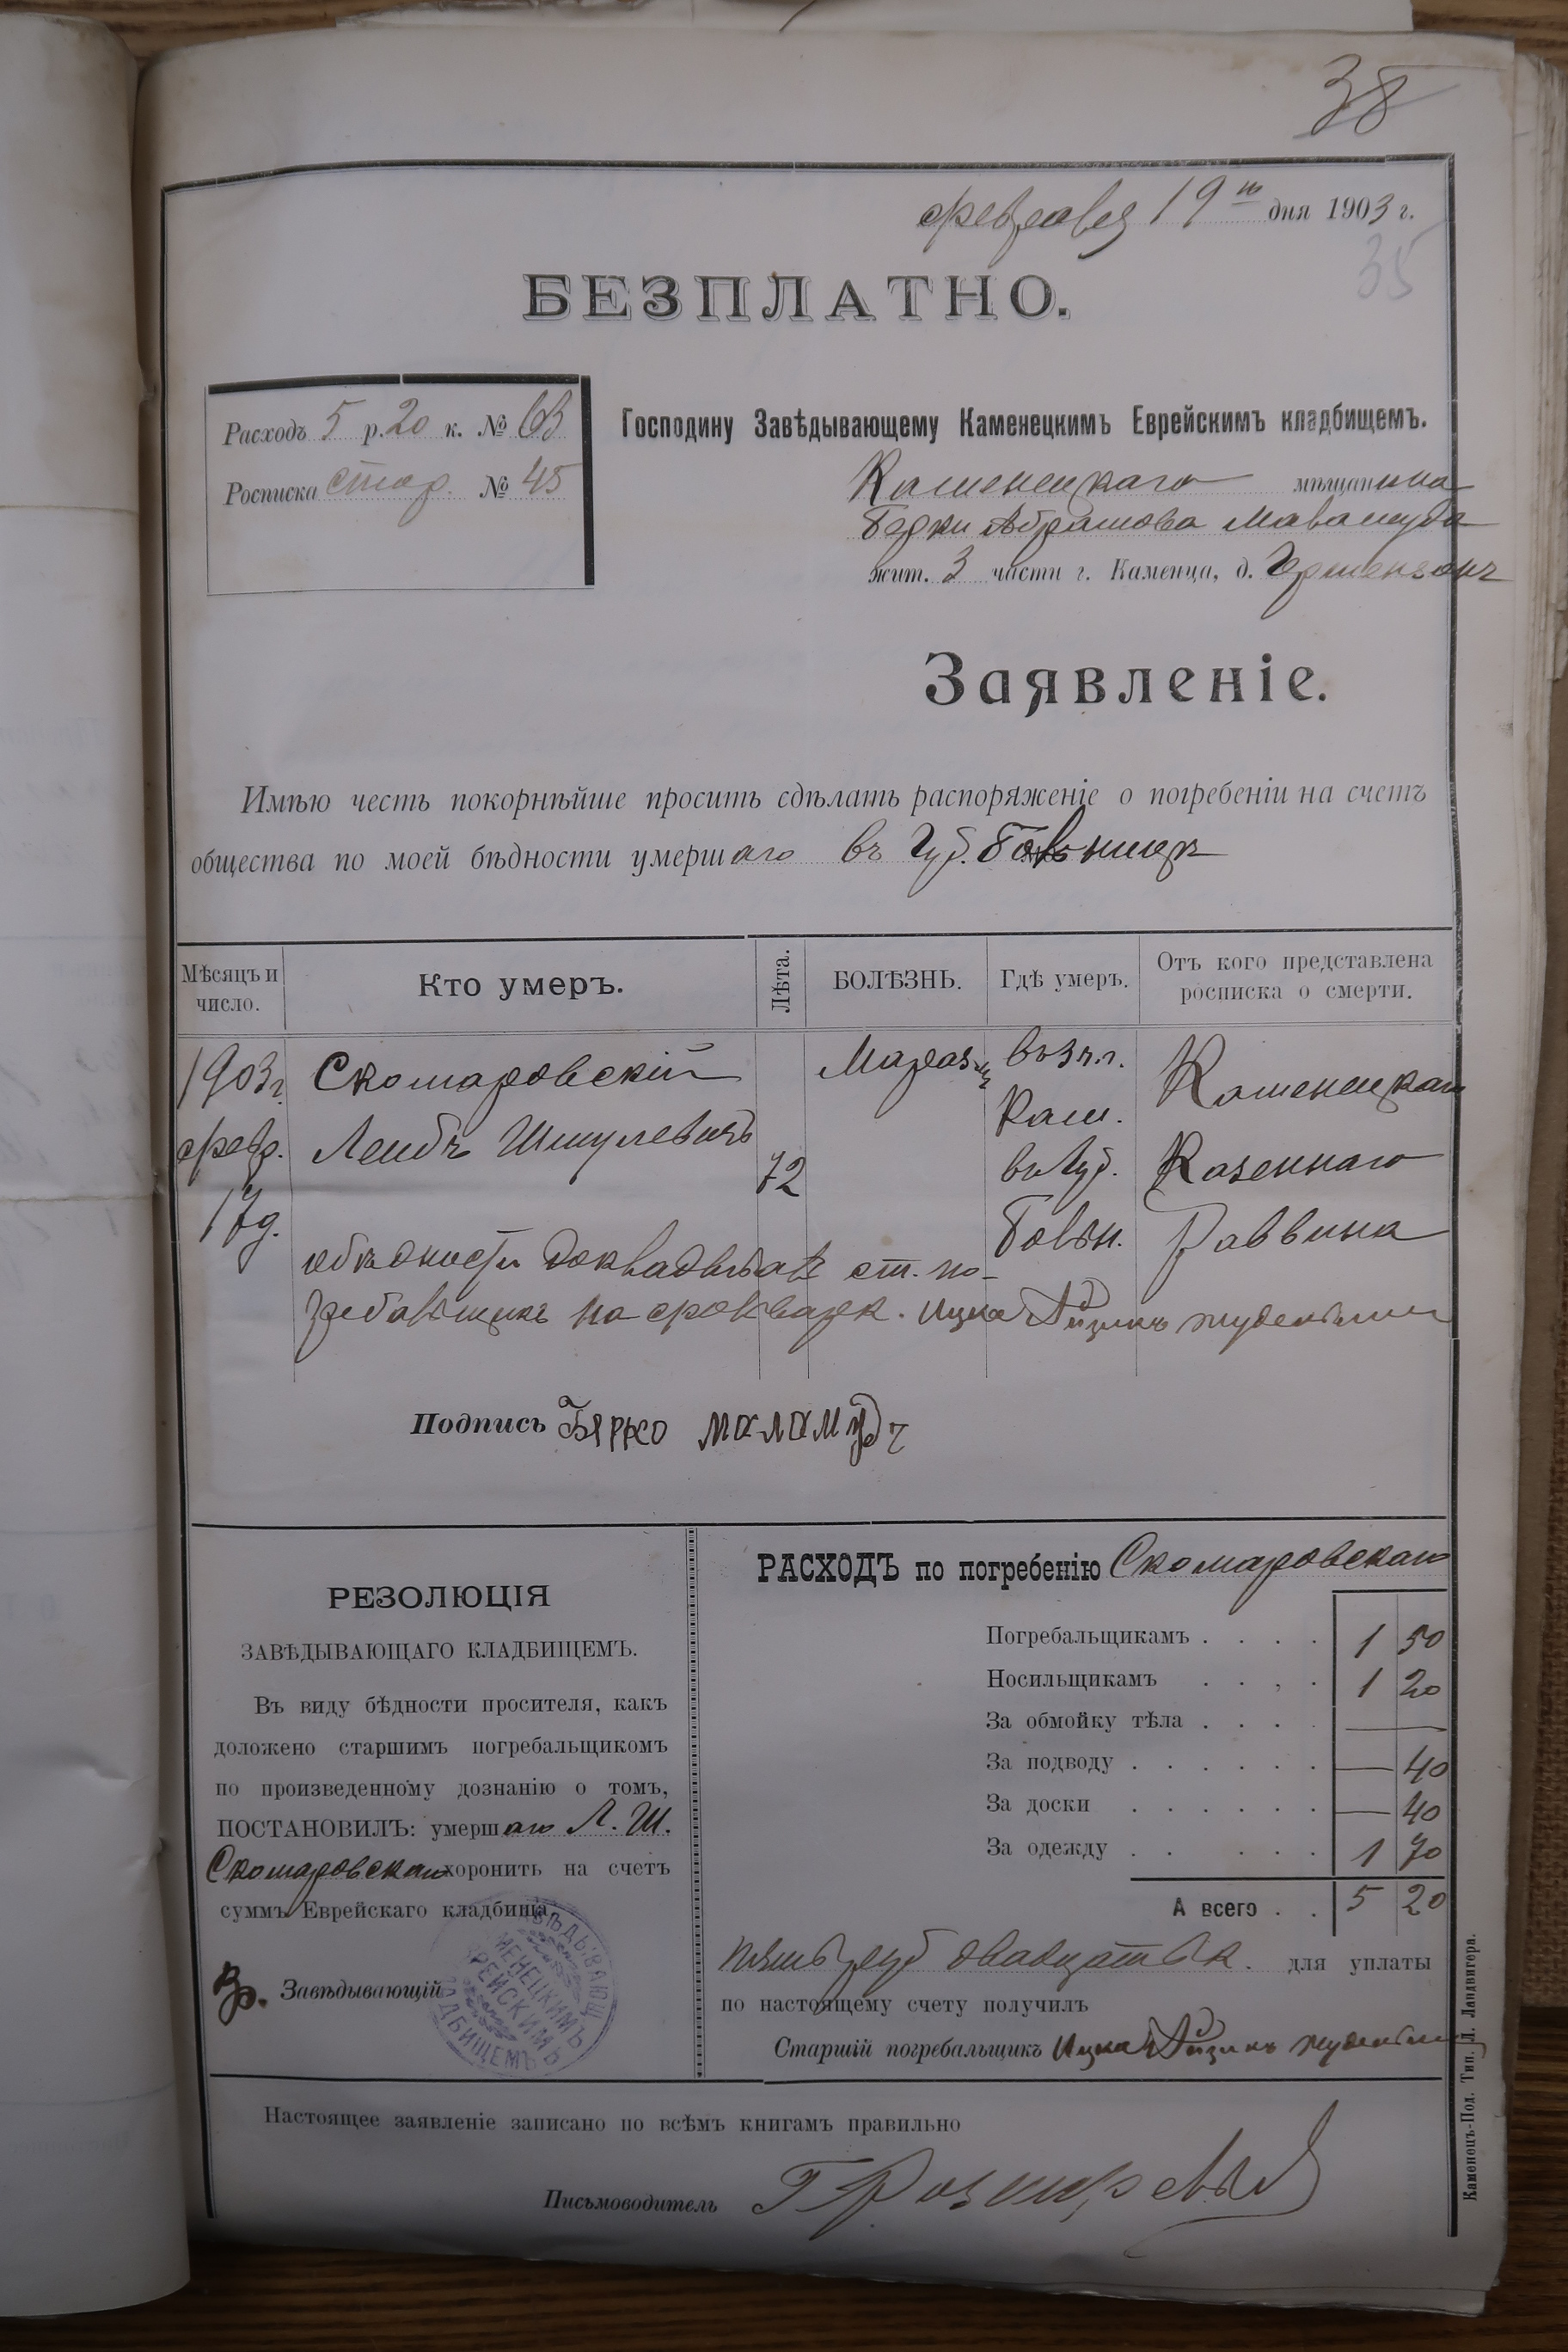 38
февраля 19го дня 1903 г.
35
БЕЗПЛАТНО.
Расходъ 5 р. 20 к. № 63
Росписка стар. № 45
Господину Завѣдывающему Каменецкимъ Еврейскимъ кладбищемъ.
Каменецкаго мѣщанина
Берки Абрамова Маламуда
жит. 3 части г. Каменца, д. Гершензонъ
Заявленіе.
Имѣю честь покорнѣйше просить сдѣлать распоряженіе о погребеніи на счетъ
общества по моей бѣдности умершаго въ Губ.
Мѣсяцъ и число. Кто умеръ. Лѣта. БОЛѢЗНЬ. Гдѣ умеръ. Отъ кого представлена росписка о смерти.
1903 г. Скомаровскій въ Каменецкаго
февр. Лейбъ Шмулевичъ 72 Кам. Казеннаго
17 д. въ Губ. Раввина
Болн.
о бѣдности докладывалъ ст. по-
гребальщикъ Ицко Айзикъ
Подпись Бярко маламудъ
РЕЗОЛЮЦІЯ
ЗАВѢДЫВАЮЩАГО КЛАДБИЩЕМЪ.
Въ виду бѣдности просителя, какъ
доложено старшимъ погребальщикомъ
по произведенному дознанію о томъ,
ПОСТАНОВИЛЪ: умершаго Л. Ш.
Скомаровскаго хоронить на счетъ
суммъ Еврейскаго кладбища.
Вр. Завѣдывающій
РАСХОДЪ по погребенію Скомаровскаго
Погребальщикамъ . . . . 1 50
Носильщикамъ . . . . 1 20
За обмойку тѣла . . . . —
За подводу . . . . . . — 40
За доски . . . . . . — 40
За одежду . . . . . 1 70
А всего . . 5 20
пять руб двадцать к. для уплаты
по настоящему счету получилъ
Старшій погребальщикъ Ицко Айзикъ
Настоящее заявленіе записано по всѣмъ книгамъ правильно
Письмоводитель
Каменецъ-Под. Тип. Л. Ландвигера.